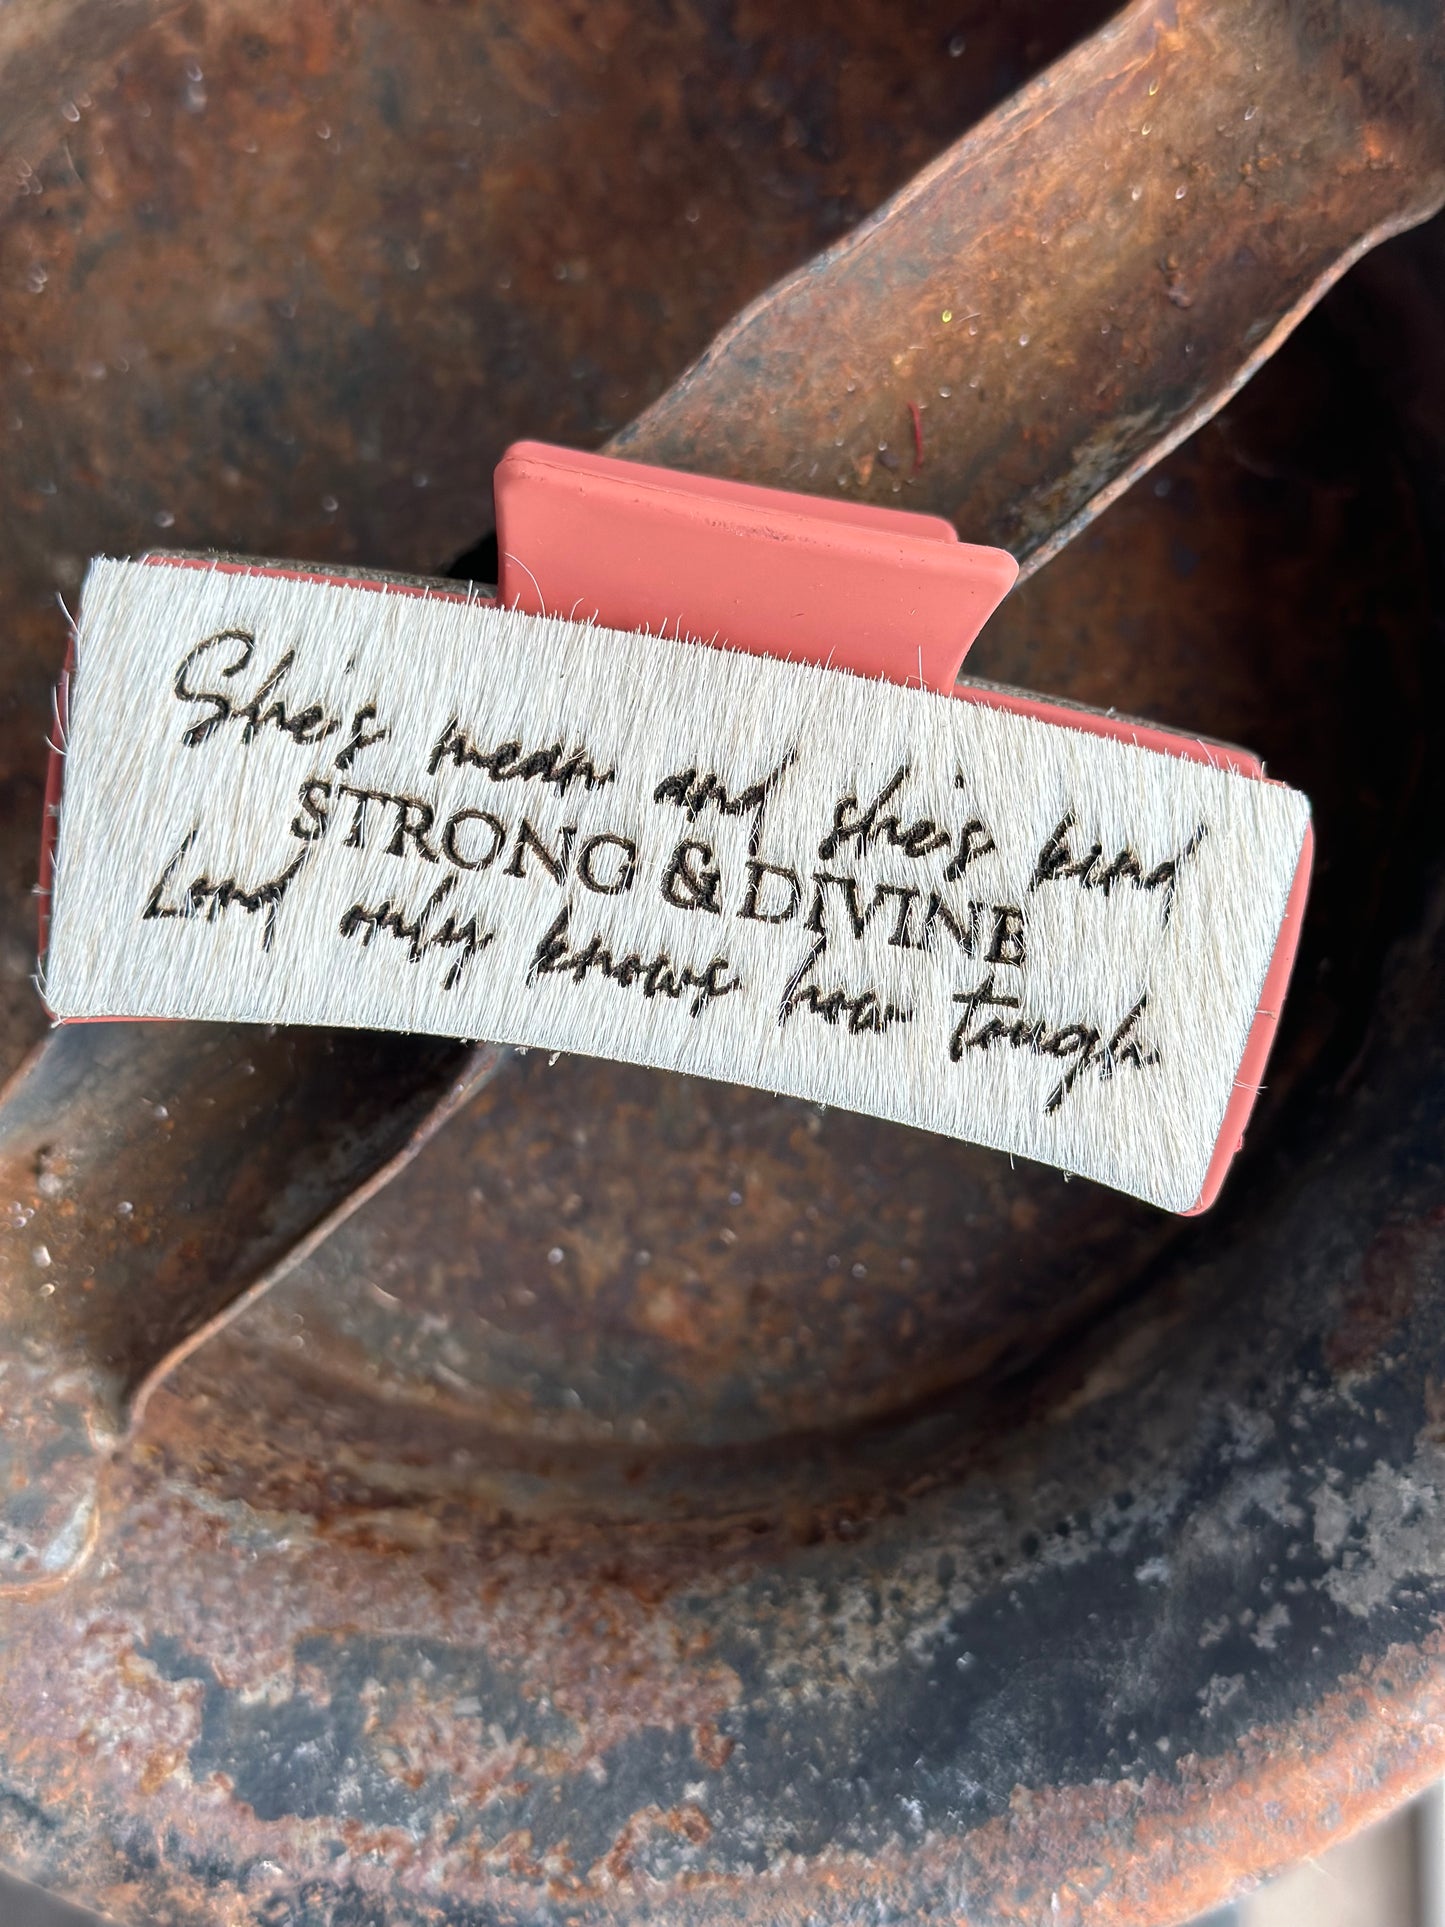 She's mean and she's kind
STRONG & DIVINE
Lord only knows how tough